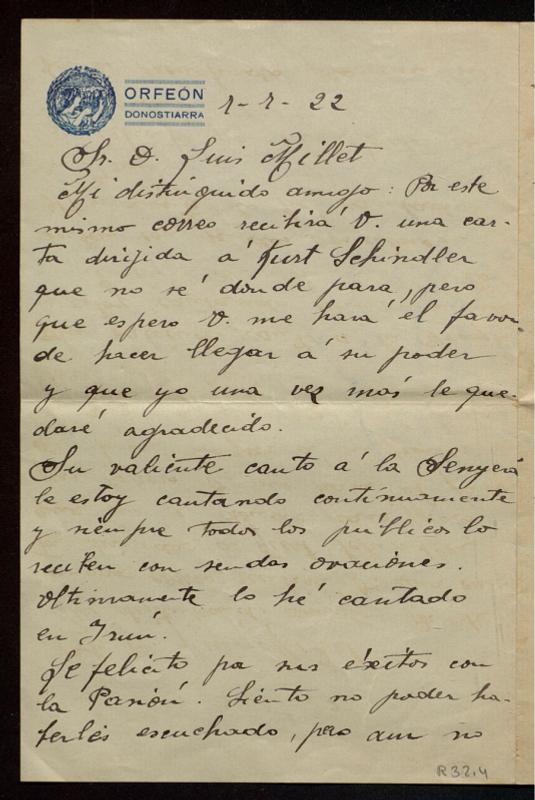 ORFEÓN
DONOSTIARRA
1-7-22
Sr. D. Luis Millet
Mi distinguido amigo: Por este
mismo correo recibirá V. una car-
ta dirijida á Kurt Schindler
que no sé donde para, pero
que espero V. me hará el favor
de hacer llegar á su poder
y que yo una vez más le que-
daré agradecido.
Su valiente canto á la Senyera
le estoy cantando continuamente
y siempre todos los públicos lo
reciben con sendas ovaciones.
Ultimamente lo hé cantado
en Irún.
Le felicito por sus éxitos con
la Pasión. Siento no poder ha-
berles escuchado, pero aun no
R32.4